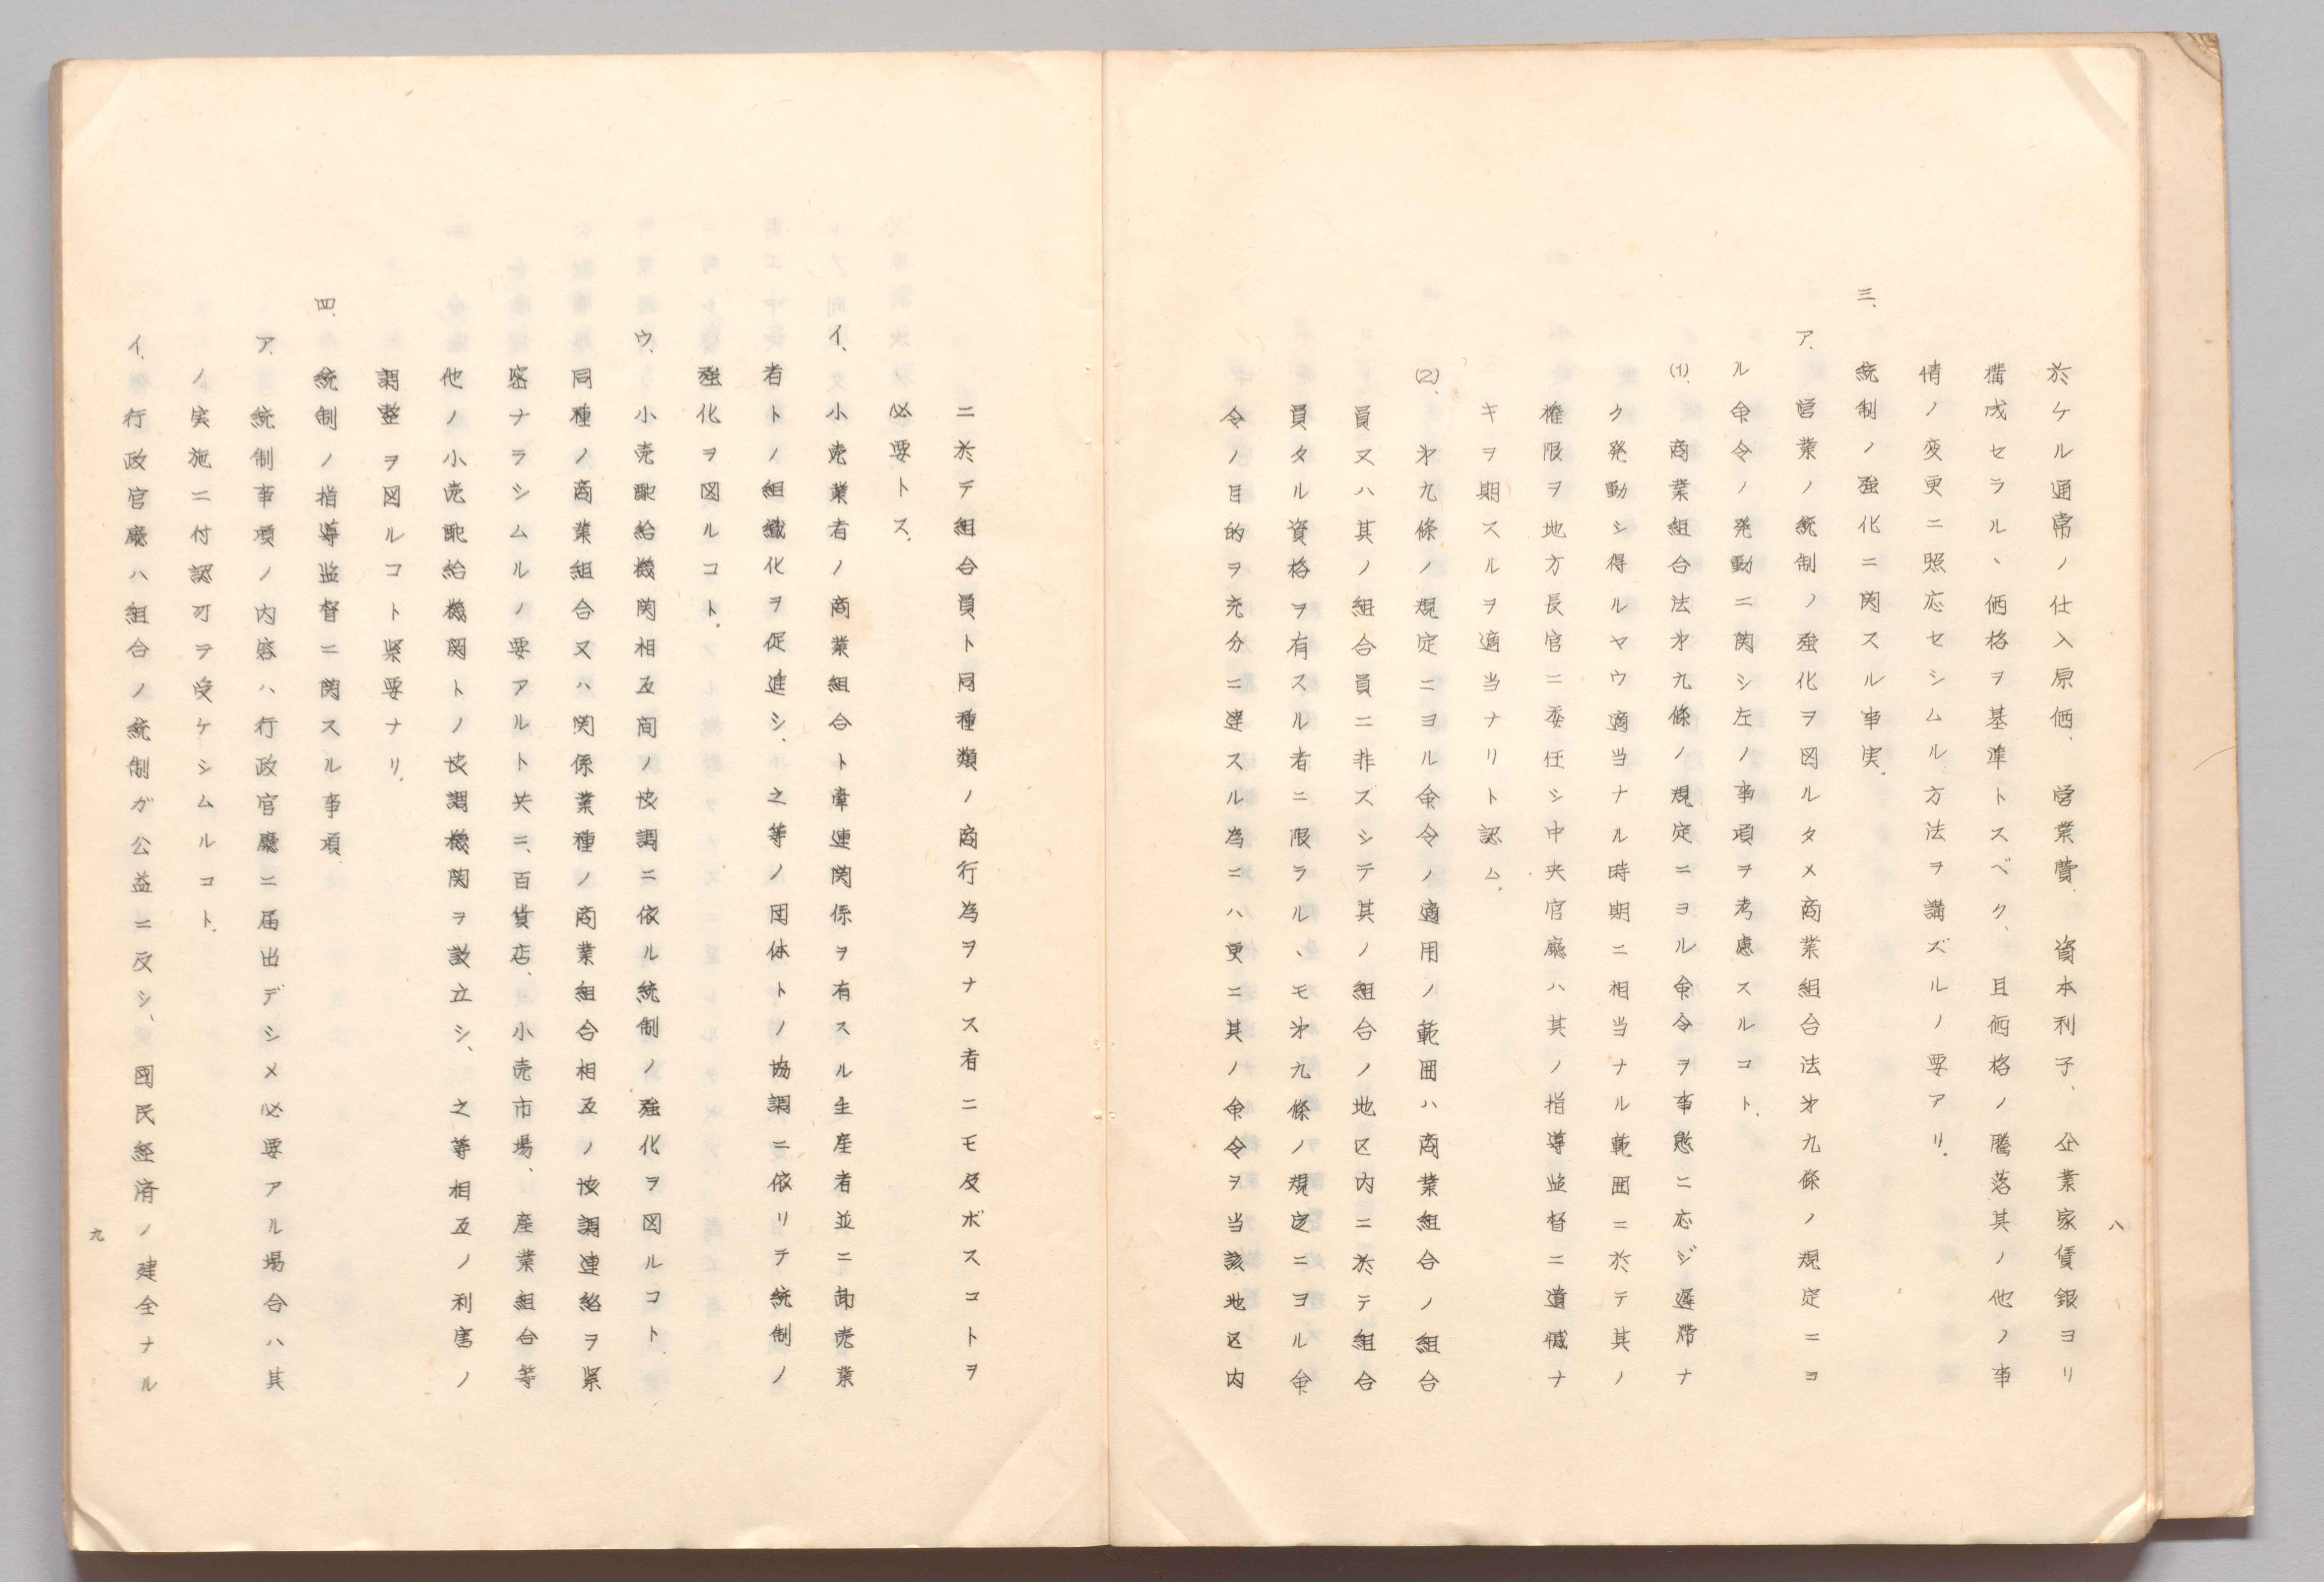 於ケル通常ノ仕入原価、営業費、資本利子、企業家賃銀ヨリ
構成セラルヽ価格ヲ基準トスベク、且価格ノ騰落其ノ他ノ事
情ノ変更ニ照応セシムル方法ヲ講ズルノ要アリ.
三、統制ノ強化ニ関スル事実.
ア.営業ノ統制ノ強化ヲ図ルタメ商業組合法才九條ノ規定ニヨ
ル命令ノ発動ニ関シ左ノ事項ヲ考慮スルコト.
(1).商業組合法才九條ノ規定ニヨル命令ヲ事態ニ応ジ遅滞ナ
ク発動シ得ルヤウ適当ナル時期ニ相当ナル範囲ニ於テ其ノ
権限ヲ地方長官ニ委任シ中央官廳ハ其ノ指導監督ニ遺憾ナ
キヲ期スルヲ適当ナリト認ム.
(2).才九條ノ規定ニヨル命令ノ適用ノ範囲ハ商業組合ノ組合
員又ハ其ノ組合員ニ非ズシテ其ノ組合ノ地区内ニ於テ組合
員タル資格ヲ有スル者ニ限ラルヽモ才九條ノ規定ニヨル命
令ノ目的ヲ充分ニ達スル為ニハ更ニ其ノ命令ヲ当該地区内
八
ニ於テ組合員ト同種類ノ商行為ヲナス者ニモ及ボスコトヲ
必要トス.
イ、小売業者ノ商業組合ト牽連関係ヲ有スル生産者並ニ卸売業
者トノ組織化ヲ促進シ、之等ノ団体トノ協調ニ依リテ統制ノ
強化ヲ図ルコト.
ウ、小売配給機関相互間ノ協調ニ依ル統制ノ強化ヲ図ルコト
同種ノ商業組合又ハ関係業種ノ商業組合相互ノ協調連絡ヲ緊
密ナラシムルノ要アルト共ニ、百貨店、小売市場、産業組合等
他ノ小売配給機関トノ協調機関ヲ設立シ、之等相互ノ利害ノ
調整ヲ図ルコト緊要ナリ.
四、統制ノ指導監督ニ関スル事項
ア.統制事項ノ内容ハ行政官廳ニ届出デシメ必要アル場合ハ其
ノ実施ニ付認可ヲ受ケシムルコト.
イ、行政官廳ハ組合ノ統制ガ公益ニ反シ、國民経済ノ建全ナル
九